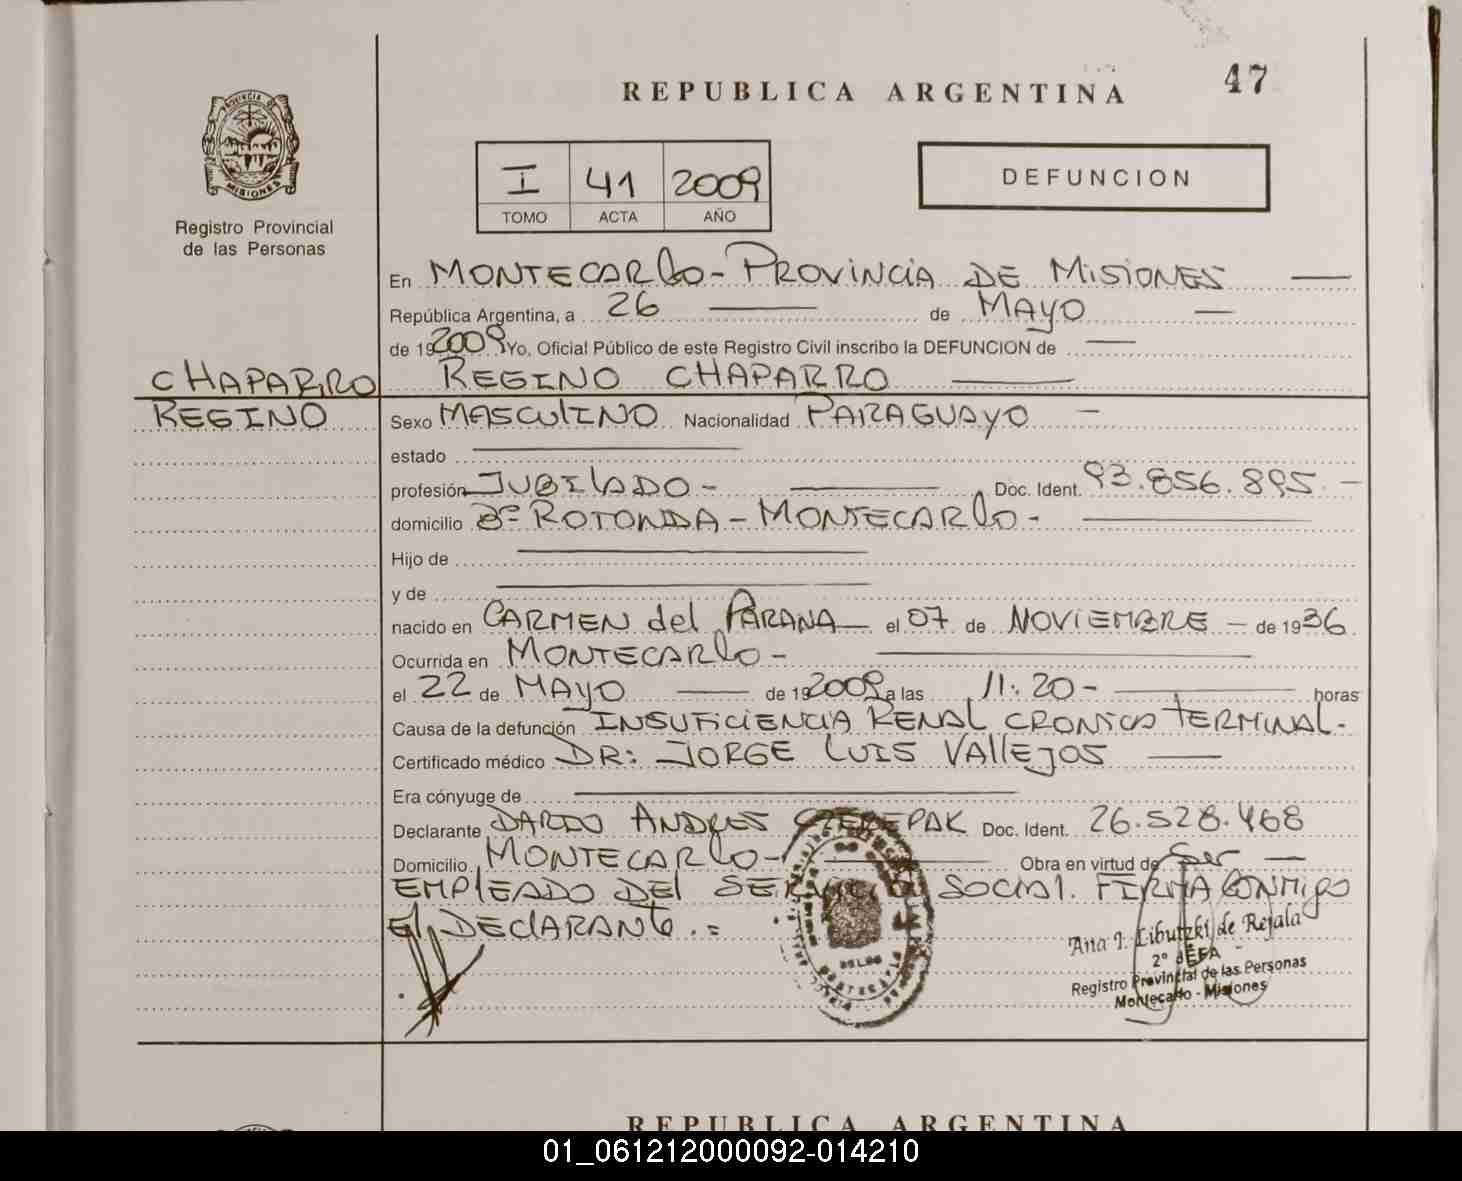 47
REPUBLICA ARGENTINA
PROVINCIA DE
MISIONES
Registro Provincial
de las Personas
I 41 2009
TOMO ACTA AÑO
DEFUNCION
En MONTECARLO - PROVINCIA DE MISIONES
República Argentina, a 26 de MAYO
de 19 2009 Yo, Oficial Público de este Registro Civil inscribo la DEFUNCION de
CHAPARRO REGINO CHAPARRO
REGINO Sexo MASCULINO Nacionalidad PARAGUAYO -
estado
profesión JUBILADO - Doc. Ident. 93.856.895 -
domicilio Bº ROTONDA - MONTECARLO -
Hijo de
y de
nacido en CARMEN del PARANA el 07 de NOVIEMBRE - de 1936
Ocurrida en MONTECARLO -
el 22 de MAYO de 19 2009 a las 11:20 - horas
Causa de la defunción INSUFICIENCIA RENAL CRONICA TERMINAL -
Certificado médico DR: JORGE LUIS VALLEJOS
Era cónyuge de
Declarante DARIO ANDRES CZEREPAK Doc. Ident. 26.528.468
Domicilio MONTECARLO - Obra en virtud de Ser
EMPLEADO DEL SERVICIO SOCIAL. FIRMA CONMIGO
El DECLARANTE . =
Ana I. Libutzki de Rejala
2º JEFA
Registro Provincial de las Personas
Montecarlo - Misiones
REPUBLICA ARGENTINA
01_061212000092-014210